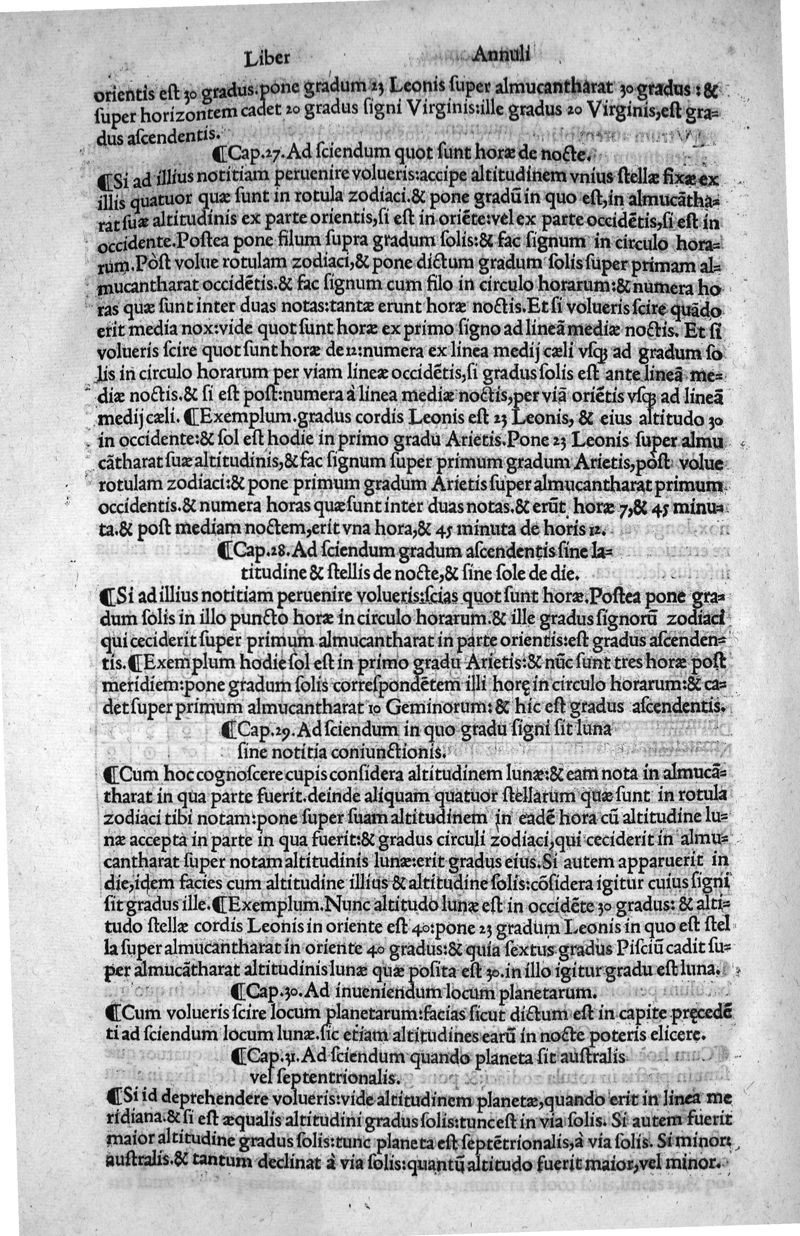 Liber Annuli
orientis est 30 gradus.pone gradum 23 Leonis super almucantharat 30 gradus:&
super horizontem cadet 20 gradus signi Virginis:ille gradus 20 Virginis,est gra=
dus ascendentis.
¶Cap.27.Ad sciendum quot sunt horæ de nocte.
¶Si ad illius notitiam peruenire volueris:accipe altitudinem vnius stellæ fixæ ex
illis quatuor quæ sunt in rotula zodiaci.& pone gradū in quo est,in almucātha=
rat suæ altitudinis ex parte orientis,si est in oriēte:vel ex parte occidētis,si est in
occidente.Postea pone filum supra gradum solis:& fac signum in circulo hora=
rum.Pòst volue rotulam zodiaci,& pone dictum gradum solis super primam al=
mucantharat occidētis.& fac signum cum filo in circulo horarum:& numera ho
ras quæ sunt inter duas notas:tantæ erunt horæ noctis.Et si volueris scire quādo
erit media nox:vide quot sunt horæ ex primo signo ad lineā mediæ noctis. Et si
volueris scire quot sunt horæ de 12:numera ex linea medij cæli vsq; ad gradum so
lis in circulo horarum per viam lineæ occidētis,si gradus solis est ante lineā me=
diæ noctis.& si est pòst:numera à linea mediæ noctis,per viā oriētis vsq; ad lineā
medij cæli. ¶Exemplum.gradus cordis Leonis est 23 Leonis, & eius altitudo 30
in occidente:& sol est hodie in primo gradu Arietis.Pone 23 Leonis super almu
cātharat suæ altitudinis,& fac signum super primum gradum Arietis,pòst volue
rotulam zodiaci:& pone primum gradum Arietis super almucantharat primum
occidentis.& numera horas quæ sunt inter duas notas.& erūt horæ 7,& 45 minu=
ta.& post mediam noctem,erit vna hora,& 45 minuta de horis 12.
¶Cap.28.Ad sciendum gradum ascendentis sine la=
titudine & stellis de nocte,& sine sole de die.
¶Si ad illius notitiam peruenire volueris:scias quot sunt horæ.Postea pone gra=
dum solis in illo puncto horæ in circulo horarum.& ille gradus signorū zodiaci
qui ceciderit super primum almucantharat in parte orientis:est gradus ascenden=
tis.¶Exemplum hodie sol est in primo gradu Arietis:& nūc sunt tres horæ post
meridiem:pone gradum solis correspondētem illi horę in circulo horarum:& ca=
det super primum almucantharat 10 Geminorum:& hic est gradus ascendentis.
¶Cap.29.Ad sciendum in quo gradu signi sit luna
sine notitia coniunctionis.
¶Cum hoc cognoscere cupis considera altitudinem lunæ:& eam nota in almucā=
tharat in qua parte fuerit.deinde aliquam quatuor stellarum quæ sunt in rotula
zodiaci tibi notam:pone super suam altitudinem in eadē hora cū altitudine lu=
næ accepta in parte in qua fuerit:& gradus circuli zodiaci,qui ceciderit in almu=
cantharat super notam altitudinis lunæ:erit gradus eius.Si autem apparuerit in
die,idem facies cum altitudine illius & altitudine solis:cōsidera igitur cuius signi
sit gradus ille.¶Exemplum.Nunc altitudo lunæ est in occidēte 30 gradus: & alti=
tudo stellæ cordis Leonis in oriente est 40:pone 23 gradum Leonis in quo est stel
la super almucantharat in oriente 40 gradus:& quia sextus gradus Pisciū cadit su=
per almucātharat altitudinis lunæ quæ posita est 30.in illo igitur gradu est luna.
¶Cap.30.Ad inueniendum locum planetarum.
¶Cum volueris scire locum planetarum:facias sicut dictum est in capite pręcedē
ti ad sciendum locum lunæ.sic etiam altitudines earū in nocte poteris elicere.
¶Cap.31.Ad sciendum quando planeta sit australis
vel septentrionalis.
¶Si id deprehendere volueris:vide altitudinem planetæ,quando erit in linea me
ridiana.& si est æqualis altitudini gradus solis:tunc est in via solis. Si autem fuerit
maior altitudine gradus solis:tunc planeta est septētrionalis,à via solis. Si minor:
australis.& tantum declinat à via solis:quantū altitudo fuerit maior,vel minor.